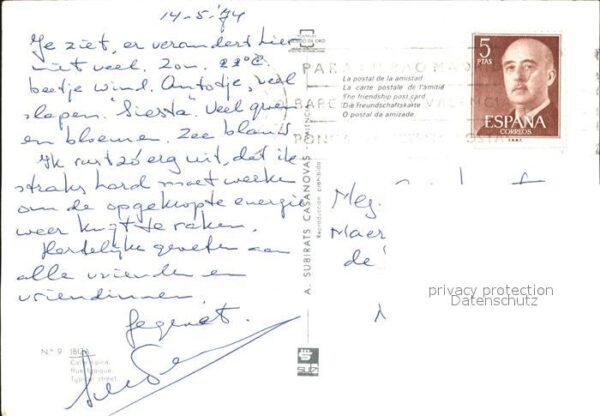 14-5-'74
Je ziet, er verandert hier
niet veel. Zon. 22°C
beetje wind. Autotje, veel
slapen. "Siesta". Veel groen
en bloemen. Zee blauw
Ik rust zó erg uit, dat ik
straks hard moet werken
om de opgekropte energie
weer kwijt te raken.
Hartelijke groeten aan
alle vrienden en
vriendinnen.
Gegroet.
N.º 9 IBIZA
Rue typique
Typical street
A. SUBIRATS CASANOVAS
Reproducción prohibida
PARA
BARC VALENCIA
La postal de la amistad
La carte postale de l'amitié
The friendship post card
Die Freundschaftskarte
O postal da amizade
5
PTAS
ESPAÑA
CORREOS
Mej.
Maer
de
privacy protection
Datenschutz